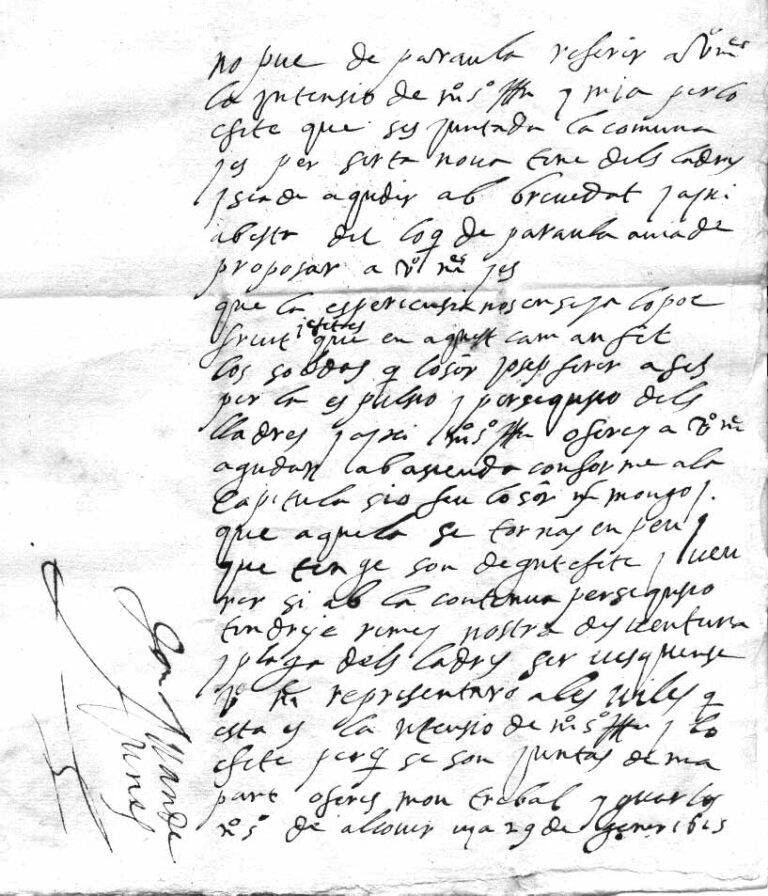 no puc de paraula referir a v. m.es
la intensio de n.o s.or y mia per lo
efite que ses juntada la comuna
y es per serta noua tinc dels ladres
y se a de aqudir ab breuedat y axi
abesta del loq de paraula auia de
proposar a v. m.es y es
que la esperiensia nos enseya lo poc
fruit y efites que en aquest cam an fet
los soldas q lo sor Josep ferer a fes
per la espulsio y persequsio dels
lladres y axi n.o s.or oferes a v. m.
agudar ab asienda conforme a la
Capitula sio feu lo sor mongoy.
que aquela se tornas en peu y
que tinge son degut efite y ueu
rer si ab la contenua persequsio
tindreje remey nostra desuentura
y plaga dels ladres ser uesquense
v. m. representaro a les uiles q
esta es la intensio de n.o s.or y lo
efite perq se son juntas de ma
part oferes mon trebal y guar los
n.o s.r de alcouer uy a 29 de gener 1615
Don Juan de